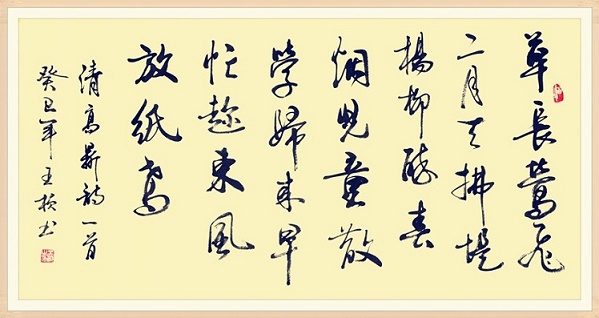 草長鶯飛
二月天拂堤
楊柳醉春
烟兒童散
學歸来早
忙趁東風
放紙鳶
清高鼎詩一首
癸卯年王書